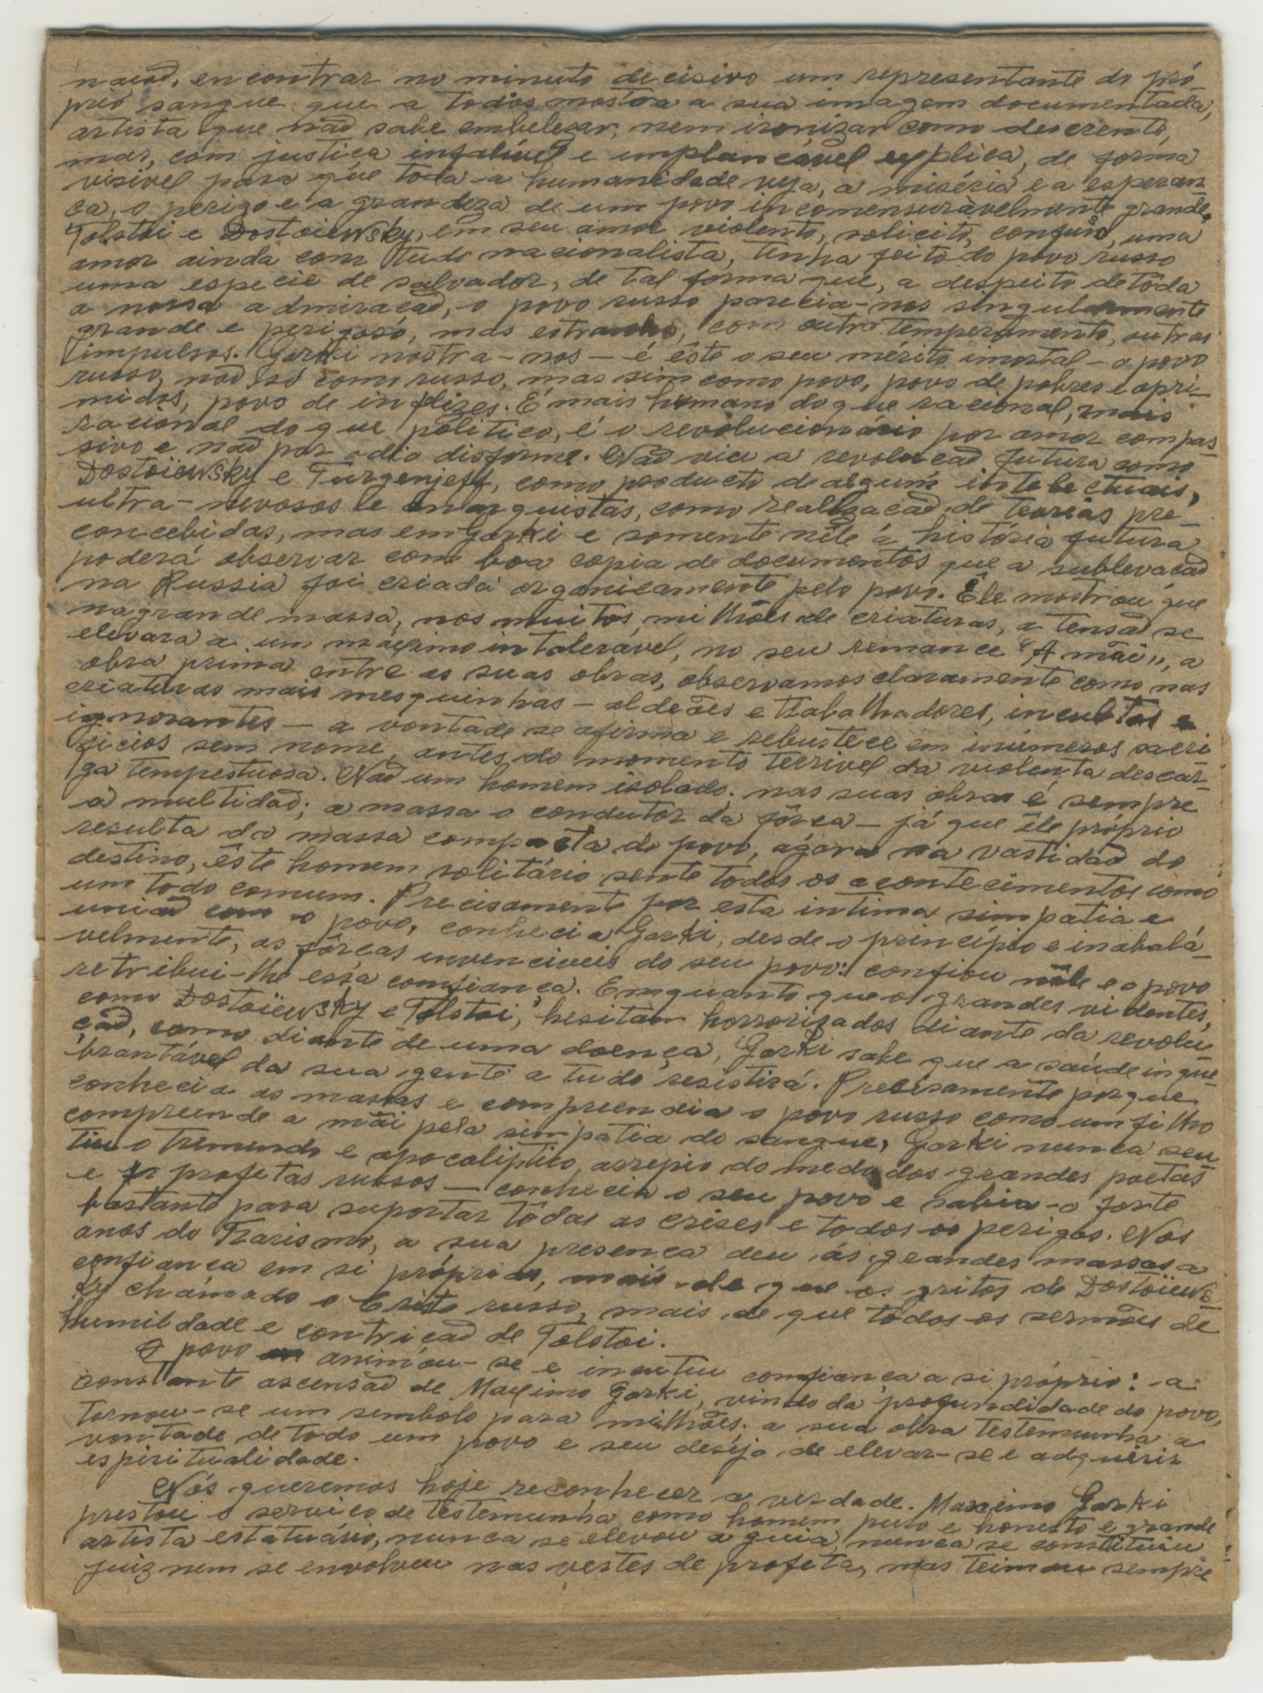 nação, encontrar no minuto decisivo um representante do pró-
prio sangue que a todos mostra a sua imagem documentada,
artista que não sabe embelezar, nem ironizar como descrente,
mas, com justiça infalível e implancável explica, de forma
visivel para que toda a humanidade veja, a miséria e a esperan-
ça, o perigo e a grandeza de um povo incomensuràvelmente grande.
Tolstoi e Dostoiewsky, em seu amor violento, solicito, confuso, uma
amor ainda com tudo nacionalista, tinha feito do povo russo
uma especie de salvador, de tal forma que, a despeito de tôda
a nossa admiração, o povo russo parecia-nos singularmente
grande e perigoso, mas estranho, com outro temperamento, outros
impulsos. Gorki mostra-nos - é êste o seu mérito imortal - o povo
russo, não só como russo, mas sim como povo, povo de pobres e opri-
midos, povo de infelizes. É mais humano do que racional, mais
racional do que político, é o revolucionario por amor compas-
sivo e não por odio disforme. Não viu a revolução futura como
Dostoiewsky e Turgenjeff, como producto de alguns intelectuais,
ultra-nervosos e anarquistas, como realização de teorias pre-
concebidas, mas em Gorki e somente nêle a história futura
poderá observar com boa copia de documentos que a sublevação
na Russia foi criada organicamente pelo povo. Êle mostrou que
na grande massa, nos muitos milhões de criaturas, a tensão se
elevara a um máximo intoleravel, no seu romance "A mãi", a
obra prima entre as suas obras, observamos claramente como nas
criaturas mais mesquinhas - aldeões e trabalhadores, incultos e
ignorantes - a vontade se afirma e robustece em inúmeros sacri-
ficios sem nome, antes do momento terrivel da violenta descar-
ga tempestuosa. Não um homem isolado, nas suas obras é sempre
a multidão; a massa o condutor da fôrça - já que êle próprio
resulta da massa compacta do povo, agora na vastidão do
destino, êste homem solitário sente todos os acontecimentos como
um todo comum. Precisamente por esta intima simpatia e
união com o povo, conhecia Gorki, desde o princípio e inabalá-
velmente, as fôrças invenciveis do seu povo: confiou nêle e o povo
retribui-lhe essa confiança. Emquanto que os grandes videntes,
como Dostoïewsky e Tolstoi, hesitam horrorizados diante da revolu-
ção, como diante de uma doença, Gorki sabe que a saúde inque-
brantável da sua gente a tudo resistirá. Precisamente porque
conhecia as massas e compreendia o povo russo como um filho
compreende a mãi pela simpatia do sangue, Gorki nunca sen-
tiu o tremendo e apocaliptico, arrepio do medo dos grandes poetas
e profetas russos - conhecia o seu povo e sabia-o forte
bastante para suportar tôdas as crises e todos os perigos. Nos
anos do Tzarismo, a sua presença deu ás grandes massas a
confiança em si próprias, mais do que os gritos de Dostoïews-
ky chamado o Cristo russo, mais de que todos os sermões de
humildade e contrição de Tolstoi.
O povo animou-se e incutiu confiança a si próprio: a
constante ascensão de Maximo Gorki, vindo da profundidade do povo,
tornou-se um simbolo para milhões; a sua obra testemunha a
vontade de todo um povo e seu desejo de elevar-se e adquirir
espiritualidade.
Nós queremos hoje reconhecer a verdade. Maximo Gorki
prestou o serviço de testemunha como homem puro e honesto e grande
artista estatuário, nunca se elevou a guia, nunca se constituiu
juiz nem se envolveu nas vestes de profeta, mas teimou sempre